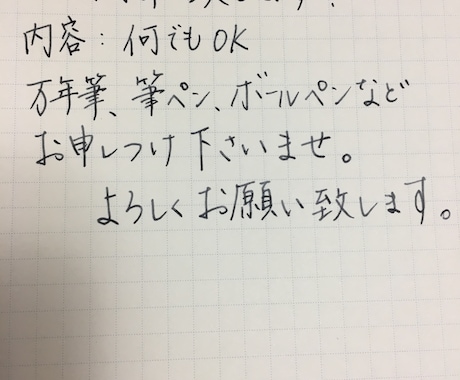 内容：何でもOK
万年筆、筆ペン、ボールペンなど
お申しつけ下さいませ。
よろしくお願い致します。